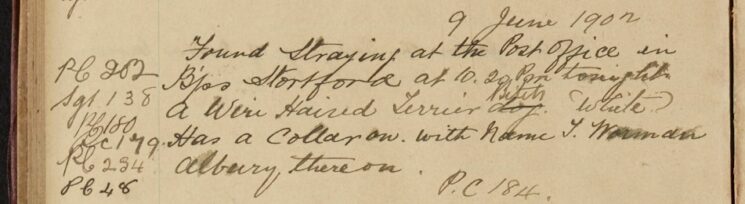 9 June 1902
Found Straying at the Post Office in
PC 282
B'ps Stortford at 10.20 Pm tonight
Sgt 138
A Wire Haired Terrier dog Bitch (White)
PC 180
PC 179
Has a Collar on. with Name T. Norman
PC 234
Albury thereon.
PC 48
P.C 184.